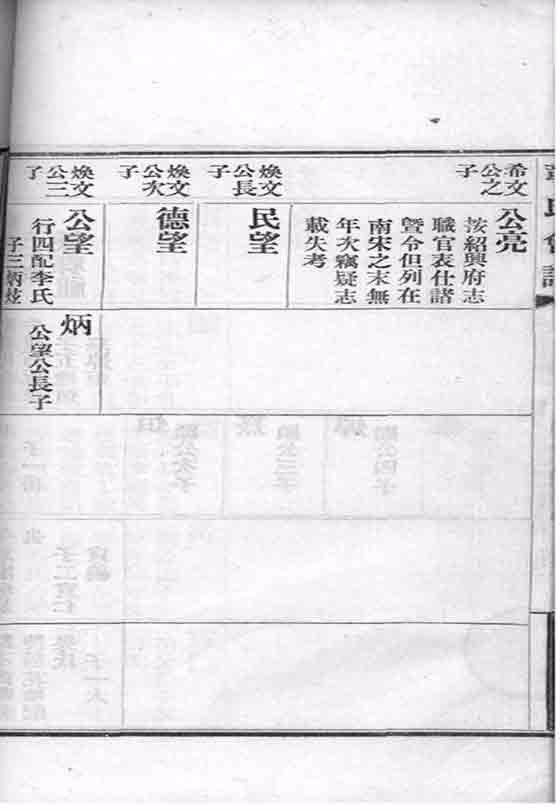 希文
公之
子
公亮
按紹興府志
職官表仕諸
暨令但列在
南宋之末無
年次竊疑志
載失考
煥文
公長
子
民望
煥文
公次
子
德望
煥文
公三
子
公望
行四配李氏
子三炳炫
炳
公望公長子